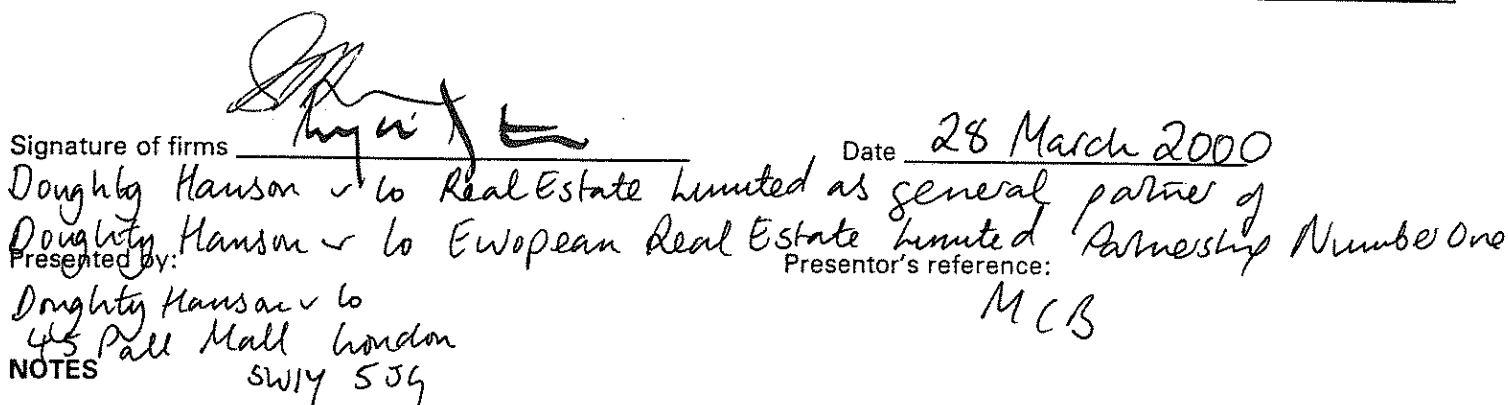 Signature of firms Date 28 March 2000
Doughty Hanson & Co Real Estate Limited as general partner of
Doughty Hanson & Co European Real Estate Limited Partnership Number One
Presented by: Presentor's reference:
Doughty Hanson & Co MCB
45 Pall Mall London
NOTES SW1Y 5JG